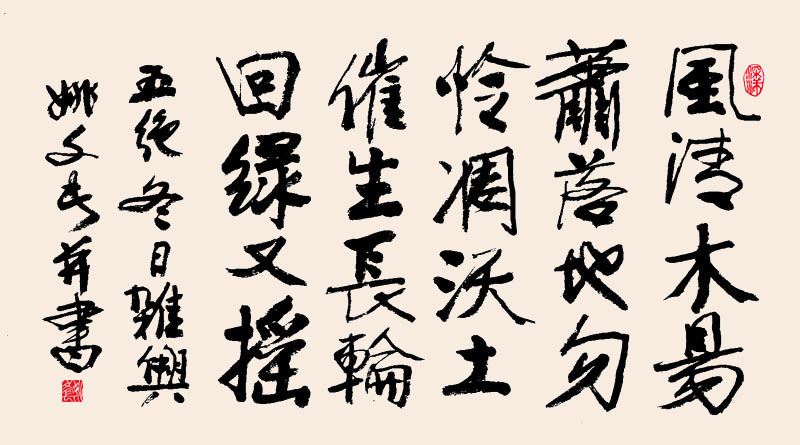 風清木易
蕭落地勿
怜凋沃土
催生長輪
回緑又摇
五絶冬日雜興
姚文長并書